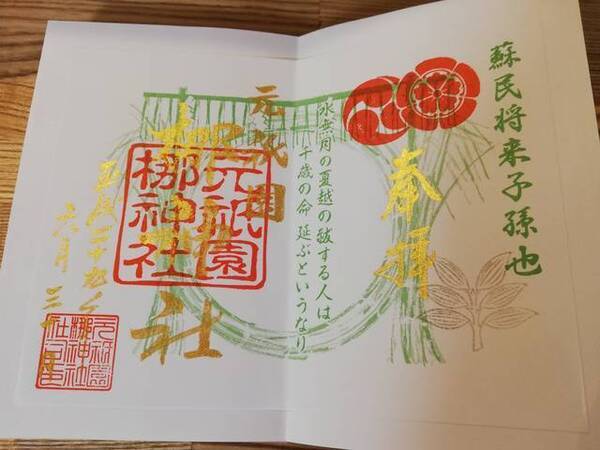 蘇民将来子孫也
奉拝
水無月の夏越の祓する人は
千歳の命 延ぶというなり
元祇園
梛神社
元祇園
梛神社
六月三十日
元祇園
梛神社